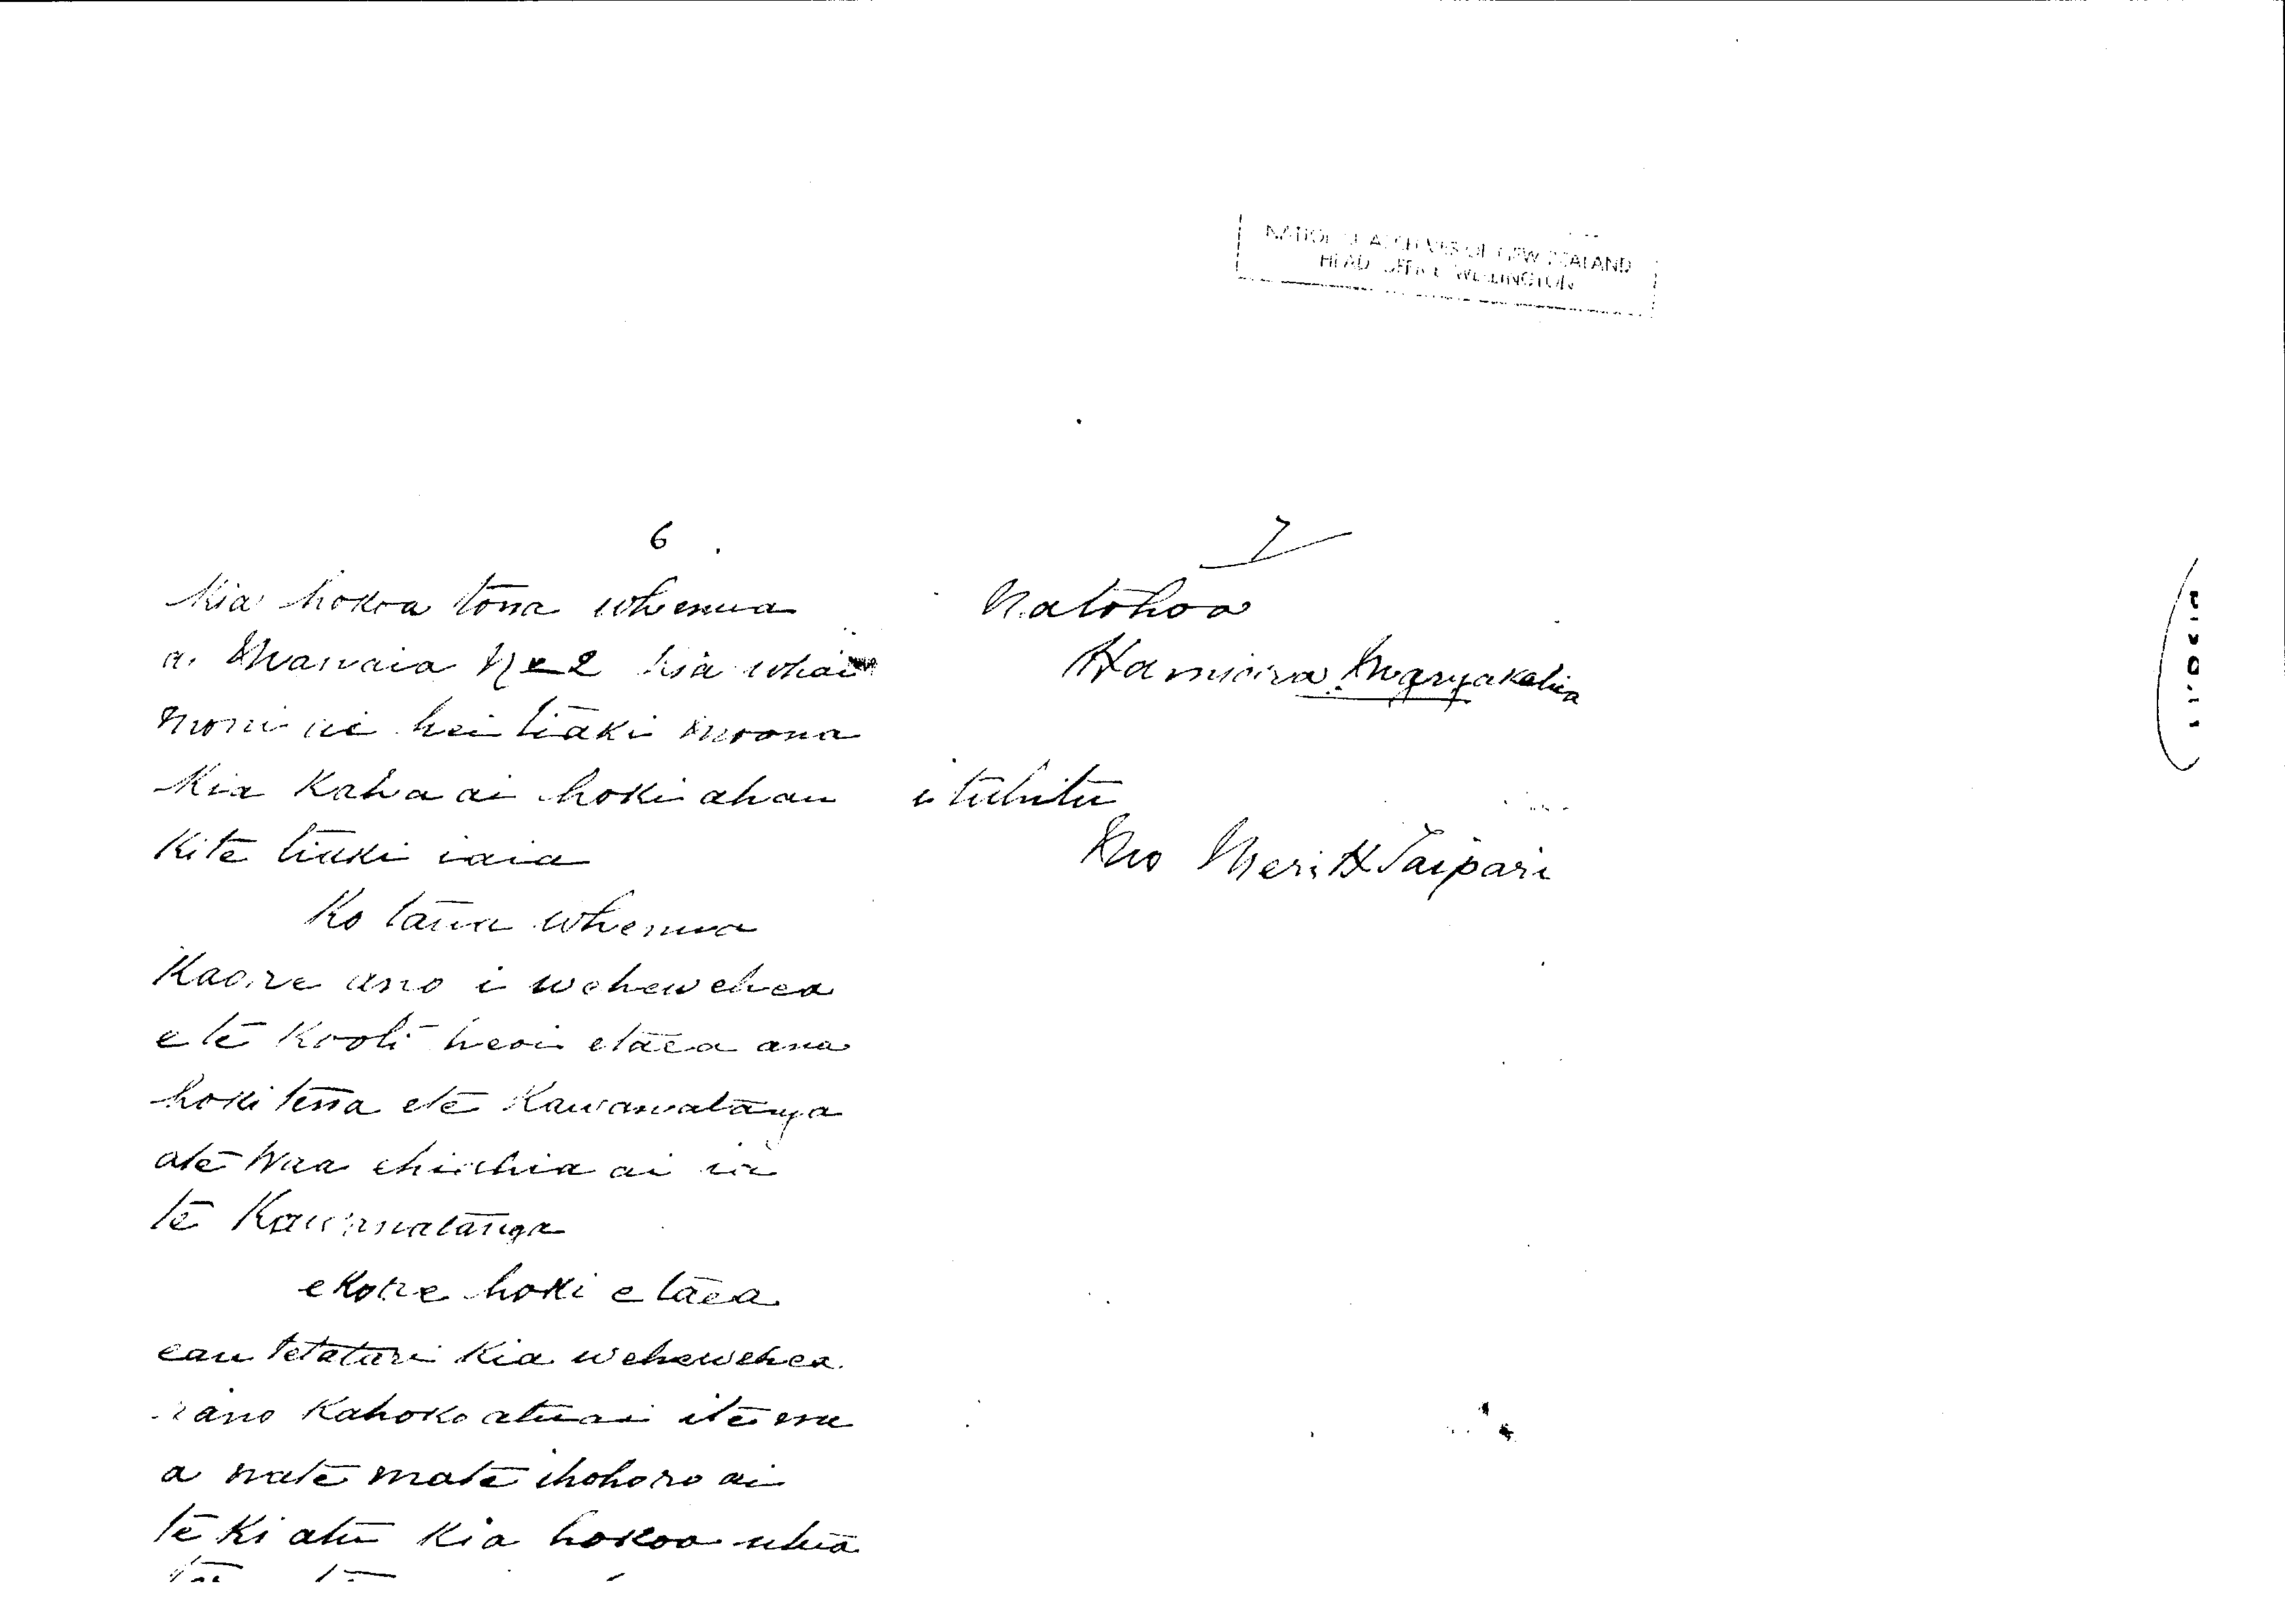 NATIONAL ARCHIVES OF NEW ZEALAND
HEAD OFFICE WELLINGTON
6.
Kia hokoa tona whenua
a. Manaia No 2 kia whai
moni ai hei tiaki moona
Kia Kaha ai hoki ahau
Kite tiaki iaia
Ko taua whenua
Kaore ano i wehewehea
e te Kooti heoi etaea ana
hoki tena ete Kawanatanga
ate Waa ehiahia ai ia
te Kawanatanga
ekore hoki e taea
eau tetatari kia wehewehea
rano Kahoko atu ai ite mu
a nate mate ihohoro ai
te Ki atu Kia hokoa
7
Natohoa
Hamiora Mangakahia
i tuhitu
Mo Meri H Taipari